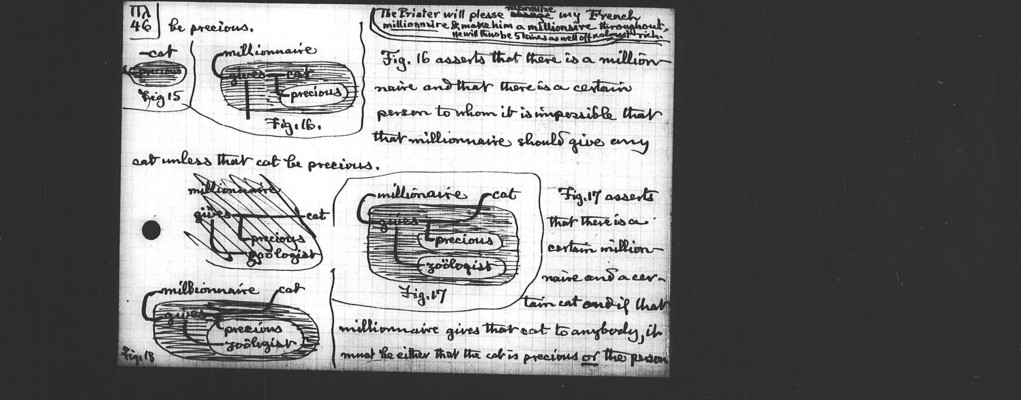 Πλ
46
be precious.
The Printer will please my French
millionnaire & make him a millionaire throughout,
He will thus be 5 times as well off, & almost rich.
cat
precious
Fig 15
millionnaire
gives cat
precious
Fig. 16.
Fig. 16 asserts that there is a million-
naire and that there is a certain
person to whom it is impossible that
that millionnaire should give any
cat unless that cat be precious.
millionnaire
gives cat
precious
zoölogist
millionaire cat
gives
precious
zoölogist
Fig. 17
Fig. 17 asserts
that there is a
certain million-
naire and a cer-
tain cat and if that
millionnaire gives that cat to anybody, it
must be either that the cat is precious or the person
millionnaire cat
gives
precious
zoölogist
Fig. 18